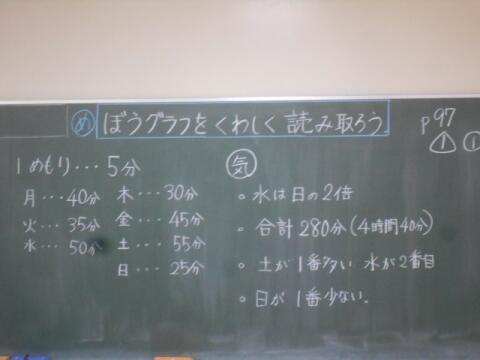 め ぼうグラフをくわしく読み取ろう.
p97
△1 ①
1めもり・・・5分
月・・・40分
火・・・35分
水・・・50分
木・・・30分
金・・・45分
土・・・55分
日・・・25分
気
。水は日の2倍
。合計280分(4時間40分)
。土が1番多い 水が2番目
。日が1番少ない.